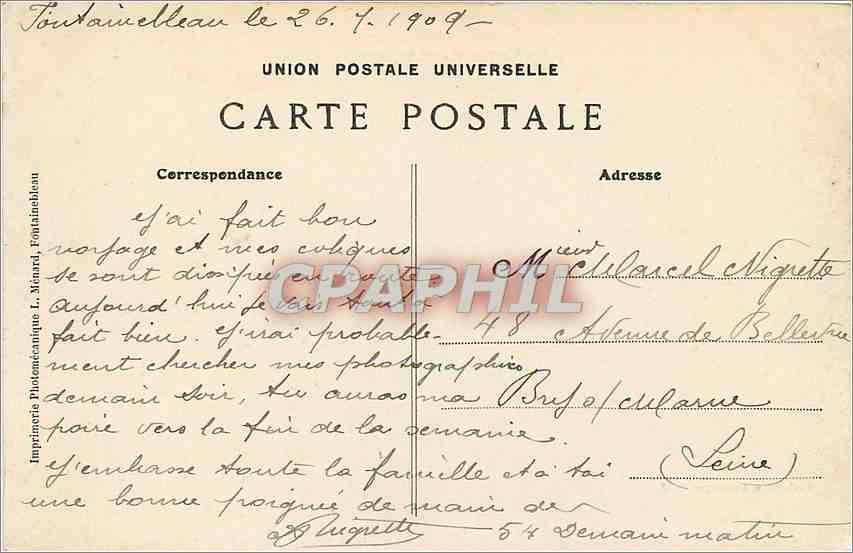 Fontainebleau le 26. 7. 1909
UNION POSTALE UNIVERSELLE
CARTE POSTALE
Correspondance
J'ai fait bon
voyage et mes coliques
se sont dissipées en route
aujourd'hui je vais tout à
fait bien. J'irai probable-
ment chercher mes photographies
demain soir, tu auras ma
poire vers la fin de la semaine.
J'embrasse toute la famille et à toi
une bonne poignée de main de
Nigrette
54 Demain matin
Adresse
Mieur Marcel Nigrette
48 Avenue de Bellevue
Bry s/ Marne
(Seine)
Imprimerie Photomécanique L. Ménard, Fontainebleau
CPAPHIL